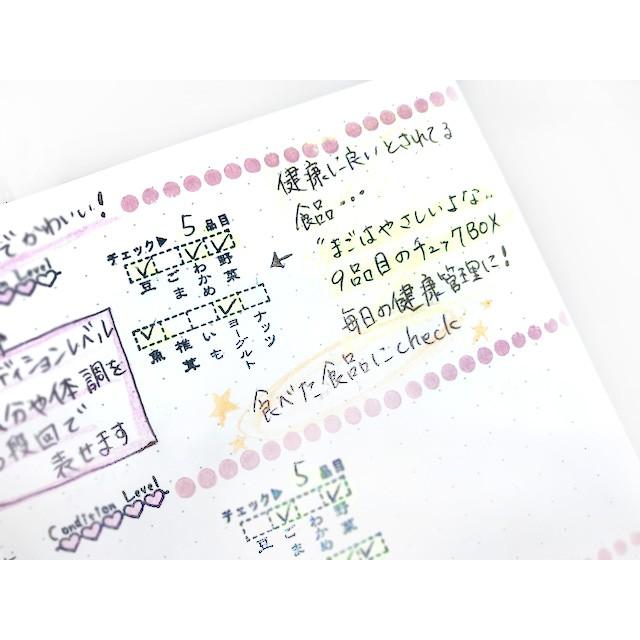 でかわいい!
Level
ディションレベル
分や体調を
段回で
表せます
チェック▶ 5 品目
豆 ごま わかめ 野菜
魚 椎茸 いも ヨーグルト ナッツ
健康に良いとされてる
食品・・・
"まごはやさしいよな"
9品目のチェックBOX
毎日の健康管理に!
食べた食品にcheck
Condision Level
チェック▶ 5 品目
豆 ごま わかめ 野菜